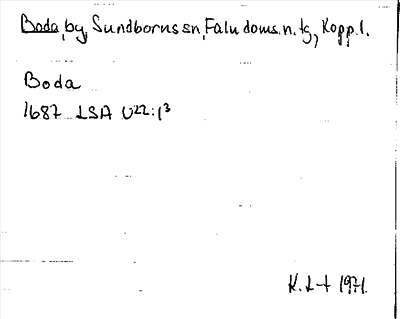 Boda, by, Sundborns sn, Falu doms. n. tg, Kopp. l.
Boda
1687 LSA U22:1³
K. L-t 1971.